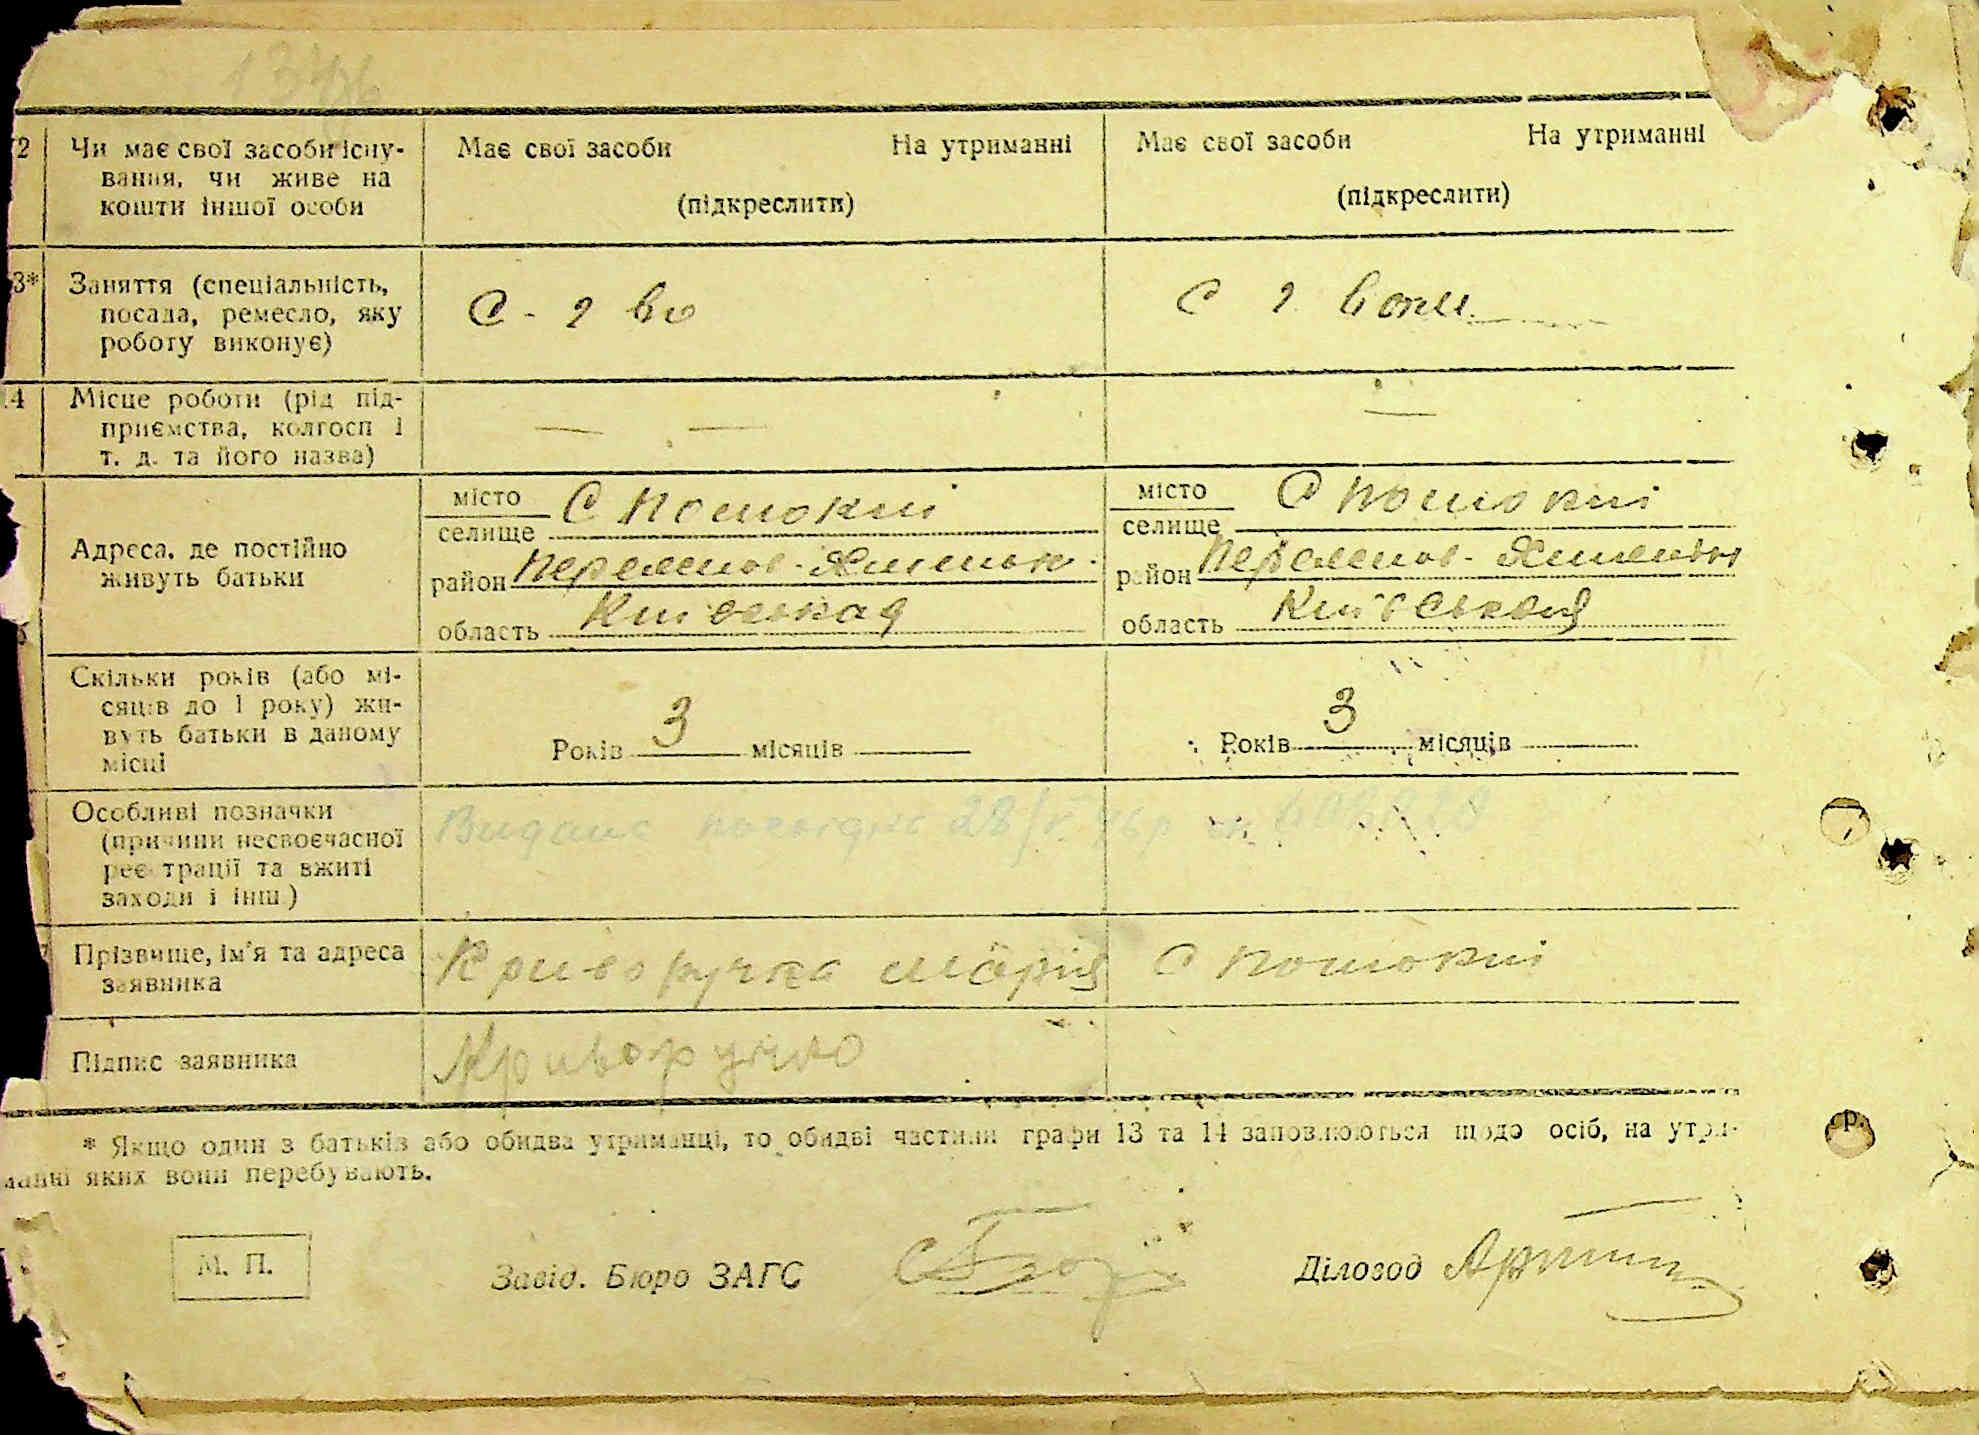 2 Чи має свої засоби існу-
вання, чи живе на
кошти іншої особи
Має свої засоби На утриманні
(підкреслити)
Має свої засоби На утриманні
(підкреслити)
3* Заняття (спеціальність,
посада, ремесло, яку
роботу виконує)
С - г
С г
4 Місце роботи (рід під-
приємства, колгосп і
т. д. та його назва)
— —
—
Адреса, де постійно
живуть батьки
місто
селище С Пошокні
район
область Київська
місто
селище С Пошокні
район
область Київська
Скільки років (або мі-
сяців до 1 року) жи-
вуть батьки в даному
місці
Років 3 місяців
Років 3 місяців
Особливі позначки
(причини несвоєчасної
реєстрації та вжиті
заходи і інш.)
Видана 28/
Прізвище, ім'я та адреса
заявника
Криворучка Марія С Пошокні
Підпис заявника
Криворучко
* Якщо один з батьків або обидва утриманці, то обидві частини графи 13 та 14 заповнюються щодо осіб, на утри-
манні яких вони перебувають.
М. П.
Завід. Бюро ЗАГС
Діловод